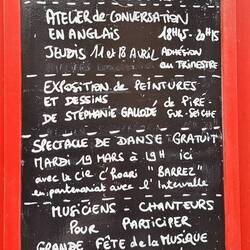 ATELIER de CONVERSATION
EN ANGLAIS 18H45 - 20H15
JEUDIS 11 et 18 AVRIL ADHÉSION
au TRIMESTRE
EXPOSITION de PEINTURES
ET DESSINS de PIRÉ
DE STÉPHANIE GALLODÉ SUR-SEICHE
SPECTACLE DE DANSE GRATUIT
MARDI 19 MARS à 19H ici
avec la cie "BARREZ"
en partenariat avec l'Intervalle
MUSICIENS CHANTEURS
POUR PARTICIPER
GRANDE FÊTE de la MUSIQUE